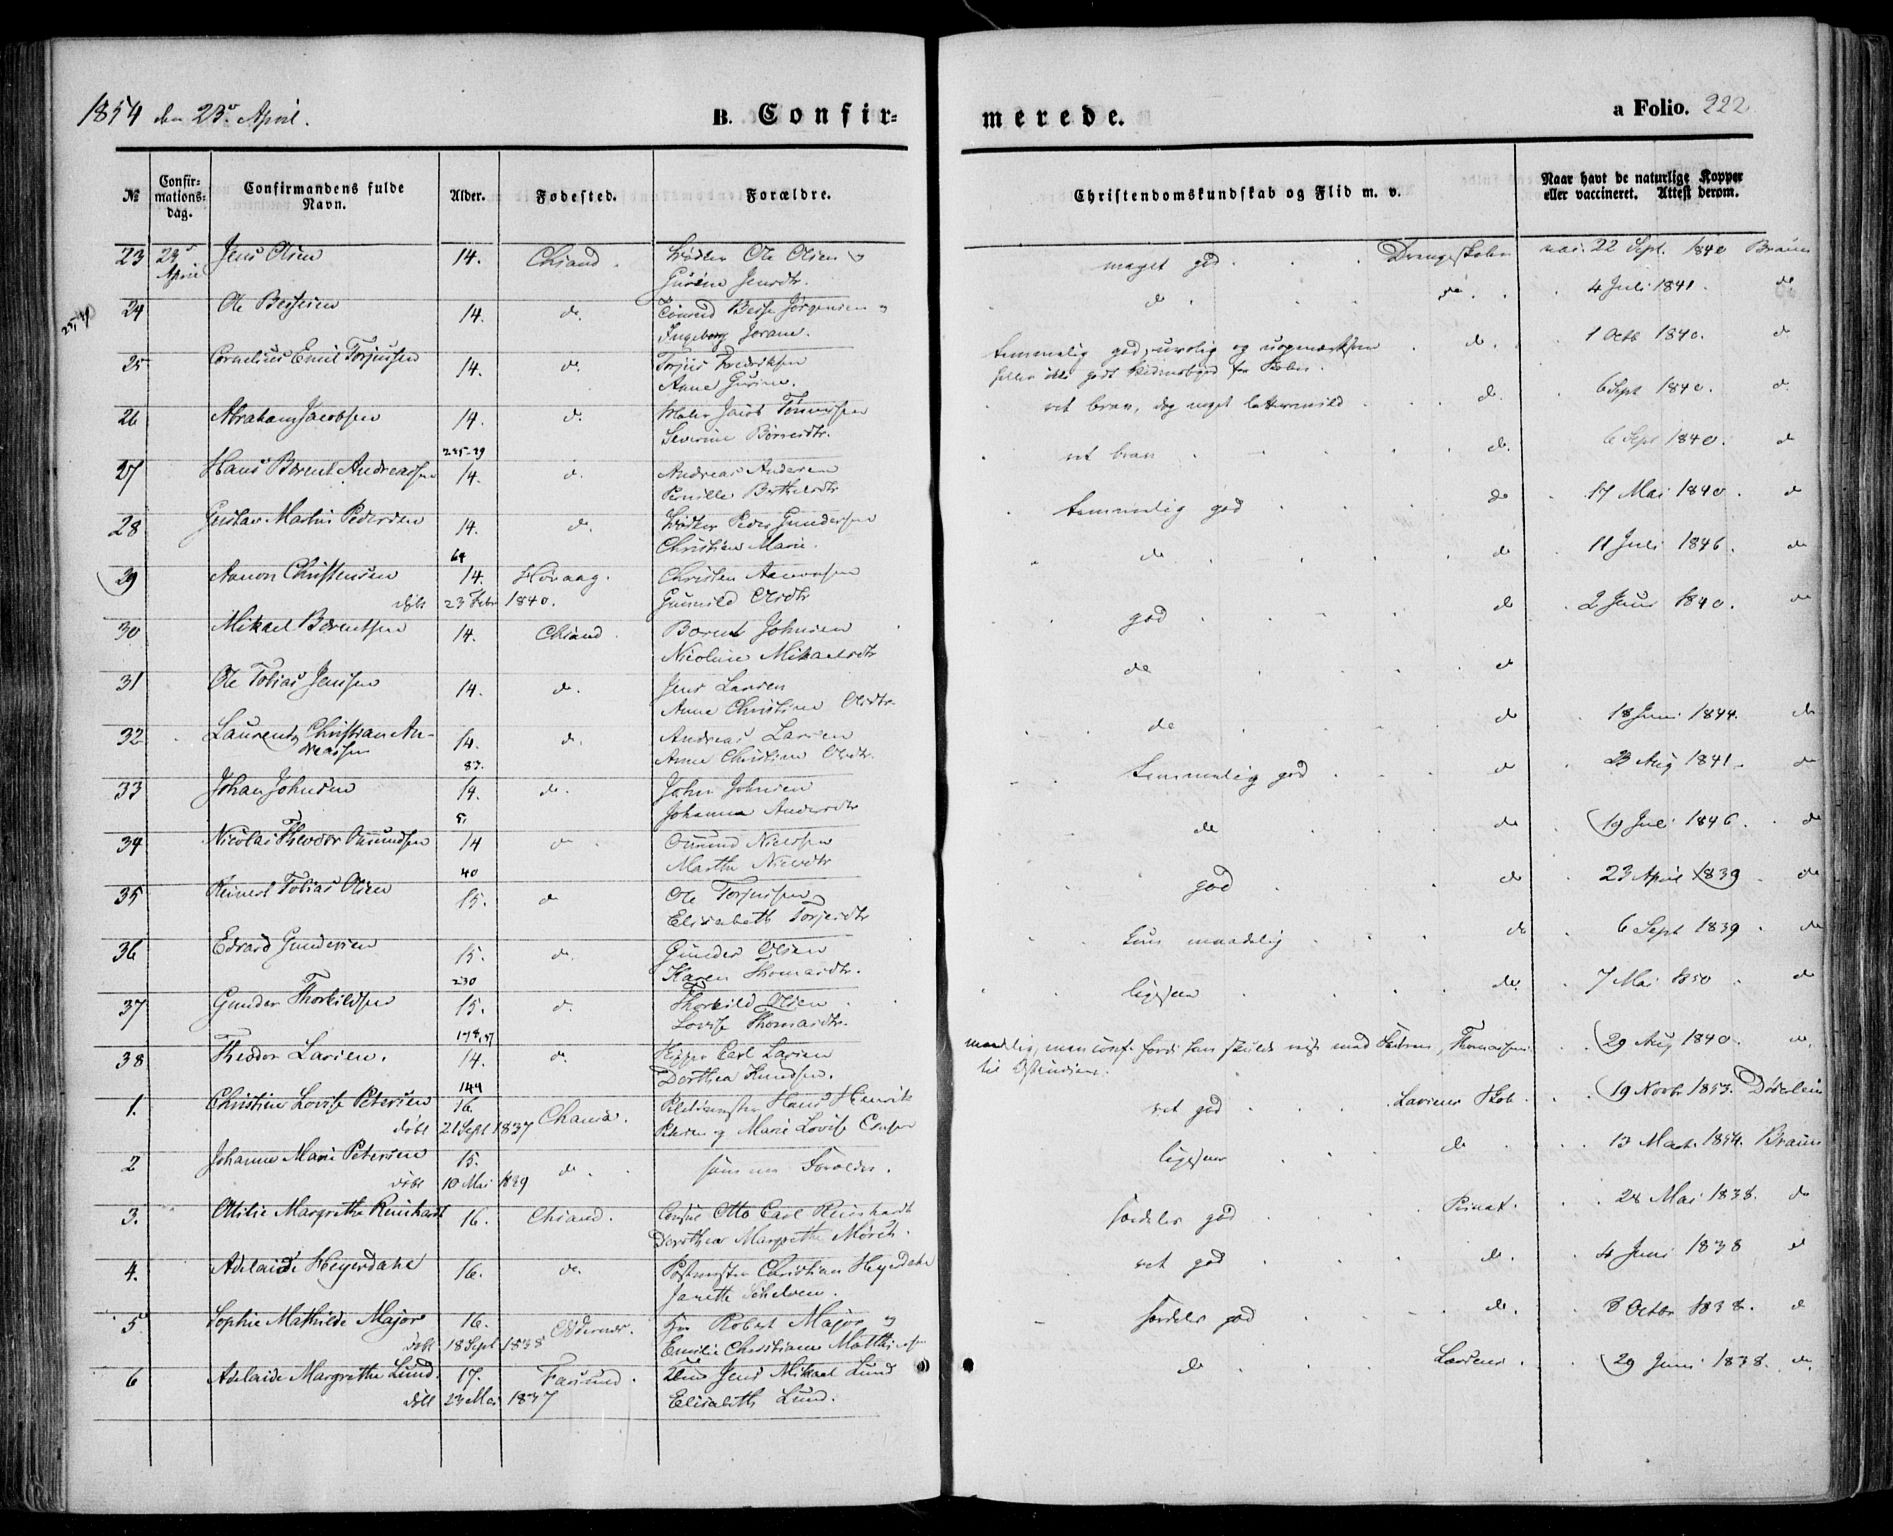 1854 den 23de April. B. Confir- merede. a Folio. 222
№ Confir-mations-dag. Confirmandens fulde Navn. Alder. Fødested. Forældre. Christendomskundskab og Flid m. v. Naar havt de naturlige Kopper eller vaccineret. Attest derom.
23 23de April Jens Olsen 14. Chsand. Ole Olsen og meget god Drengeskolen vac. 22 Sept. 1840 Braun
Jensdtr.
24 Ole Bessesen 14. do. Besse Jørgensen og do do 4 Juli 1841. do
Ingeborg
25 Cornelius Emil Torjussen 14. do. Torjus Fredriksen temmelig god, urolig og uopmærksom do. 1 Octb 1840. do
Anne Gurine.
26 Abraham Jacobsen 14. do. Jacob Tønnessen ret brav, dog noget letsindig do. 6 Sept 1840. do
Severine
225-29
27 Hans Bernt Andreassen 14. do. Andreas Andersen ret brav do. 6 Sept 1840. do
Pernille Berthelsdtr
28 Gustav Martin Pedersen 14. do. Peder Gundersen temmelig god do 17 Mai 1840. do
Christine Marie.
64
29 Aanon Christensen 14. Høvaag. Christen Aanonsen do do 11 Juli 1846. do
døbt 23 Febr 1840. Gunnild Olsdtr
30 Mikael Berentsen 14. Chsand. Berent Johnsen god do 2 Juni 1840. do
Nicoline Mikaelsdtr
31 Ole Tobias Jensen 14. do. Jens Larsen do do
Anne Christine Olsdtr.
32 Laurents Christian An- 14. do. Andreas Larsen do do 18 Juni 1844. do
dreassen Anne Christine Olsdtr.
83.
33 Johan Johnsen 14. do. John Johnsen temmelig god do 23 Aug 1841. do
Johanna Andersdtr
5.
34 Nicolai Theodor Omundsen 14 do Omund Nielsen do do 19 Juli 1846. do
Marthe Nielsdtr
40
35 Reinert Tobias Olsen 15. do Ole Torjussen god do 23 April 1839. do
Elisabeth Torjersdtr
36 Edvard Gundersen 15. do. Gunder Olsen kun maadelig do 6 Sept 1839. do
Karen Thomasdtr.
230
37 Gunder Thorkildsen 15. do. Thorkild Olsen ligesaa do. 7 Mai 1850 do
Lovise Thomasdtr.
178,37
38 Theodor Larsen. 14. do. Skipper Carl Larsen maadelig, men conf. fordi han skulde reise med Thomassen 29 Aug 1840. do.
Dorthea Knudsen. til Ostindien.
144
1. Christine Lovise Petersen 16. Chania. Hans Henrik ret god Larsens Skole 19 Novbr 1853. Døderlein
døbt 21 Sept 1837 Petersen og Marie Lovise
2 Johanne Marie Petersen 15. do. samme Forældre. ligesaa do 13 Mart. 1854. Braun
døbt 10 Mai 1839
3. Ottilie Margrethe Reinhardt 16. Chsand. Consul Otto Carl Reinhardt særdeles god Privat. 28 Mai 1838. do
Dorothea Margrethe Mørch.
4. Adelaide Heyerdahl 16. do. Postmester Christian Heyerdahl ret god do. 4 Juni 1838 do
Janette Schelven.
5 Sophie Mathilde Major 16. Oddernes. Hr. Robert Major og særdeles god do. 8 Octbr 1838. do
døbt 18 Sept 1838 Emilie Christiane
6 Adelaide Margrethe Lund. 17. Farsund. Jens Mikael Lund do Larsens. 29 Juni 1838. do.
døbt 23 Mai 1837 Elisabeth Lund.